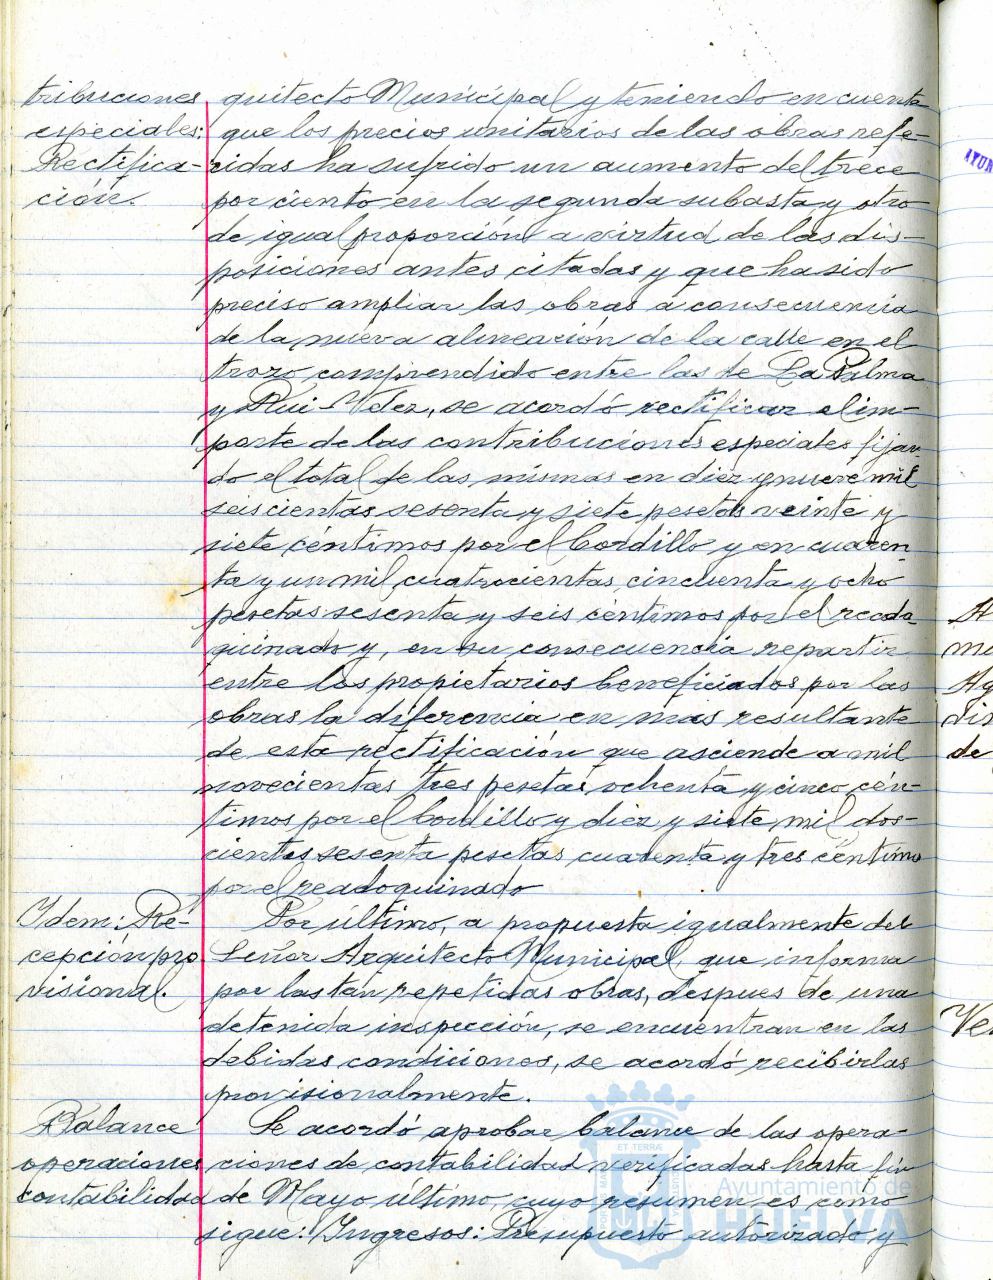 tribuciones
especiales:
Rectifica-
ción.
quitecto Municipal y teniendo en cuenta
que los precios unitarios de las obras refe-
ridas ha sufrido un aumento del trece
por ciento en la segunda subasta y otro
de igual proporción a virtud de las dis-
posiciones antes citadas y que ha sido
preciso ampliar las obras a consecuencia
de la nueva alineación de la calle en el
trozo comprendido entre las de La Palma
y Rui-Velez, se acordó rectificar el im-
porte de las contribuciones especiales fijan-
do el total de las mismas en diez y nueve mil
seiscientas sesenta y siete pesetas veinte y
siete céntimos por el bordillo y en cuaren
ta y un mil cuatrocientas cincuenta y ocho
pesetas sesenta y seis céntimos por el reado
quinado y, en su consecuencia repartir
entre los propietarios beneficiados por las
obras la diferencia en mas resultante
de esta rectificación que asciende a mil
novecientas tres pesetas ochenta y cinco cén-
timos por el bordillo y diez y siete mil dos-
cientas sesenta pesetas cuarenta y tres céntimos
por el readoquinado
Idem: Re-
cepción pro
visional.
Por último, a propuesta igualmente del
Señor Arquitecto Municipal, que informa
por las tan repetidas obras, despues de una
detenida inspección, se encuentran en las
debidas condiciones, se acordó recibirlas
provisionalmente.
Balance
operaciones
contabilidad
Se acordó aprobar balance de las opera-
ciones de contabilidad verificadas hasta fin
de Mayo último, cuyo resumen es como
sigue: Ingresos: Presupuesto autorizado y
Ayuntamiento de
HUELVA
AYUN
A
Ag
de
Ve